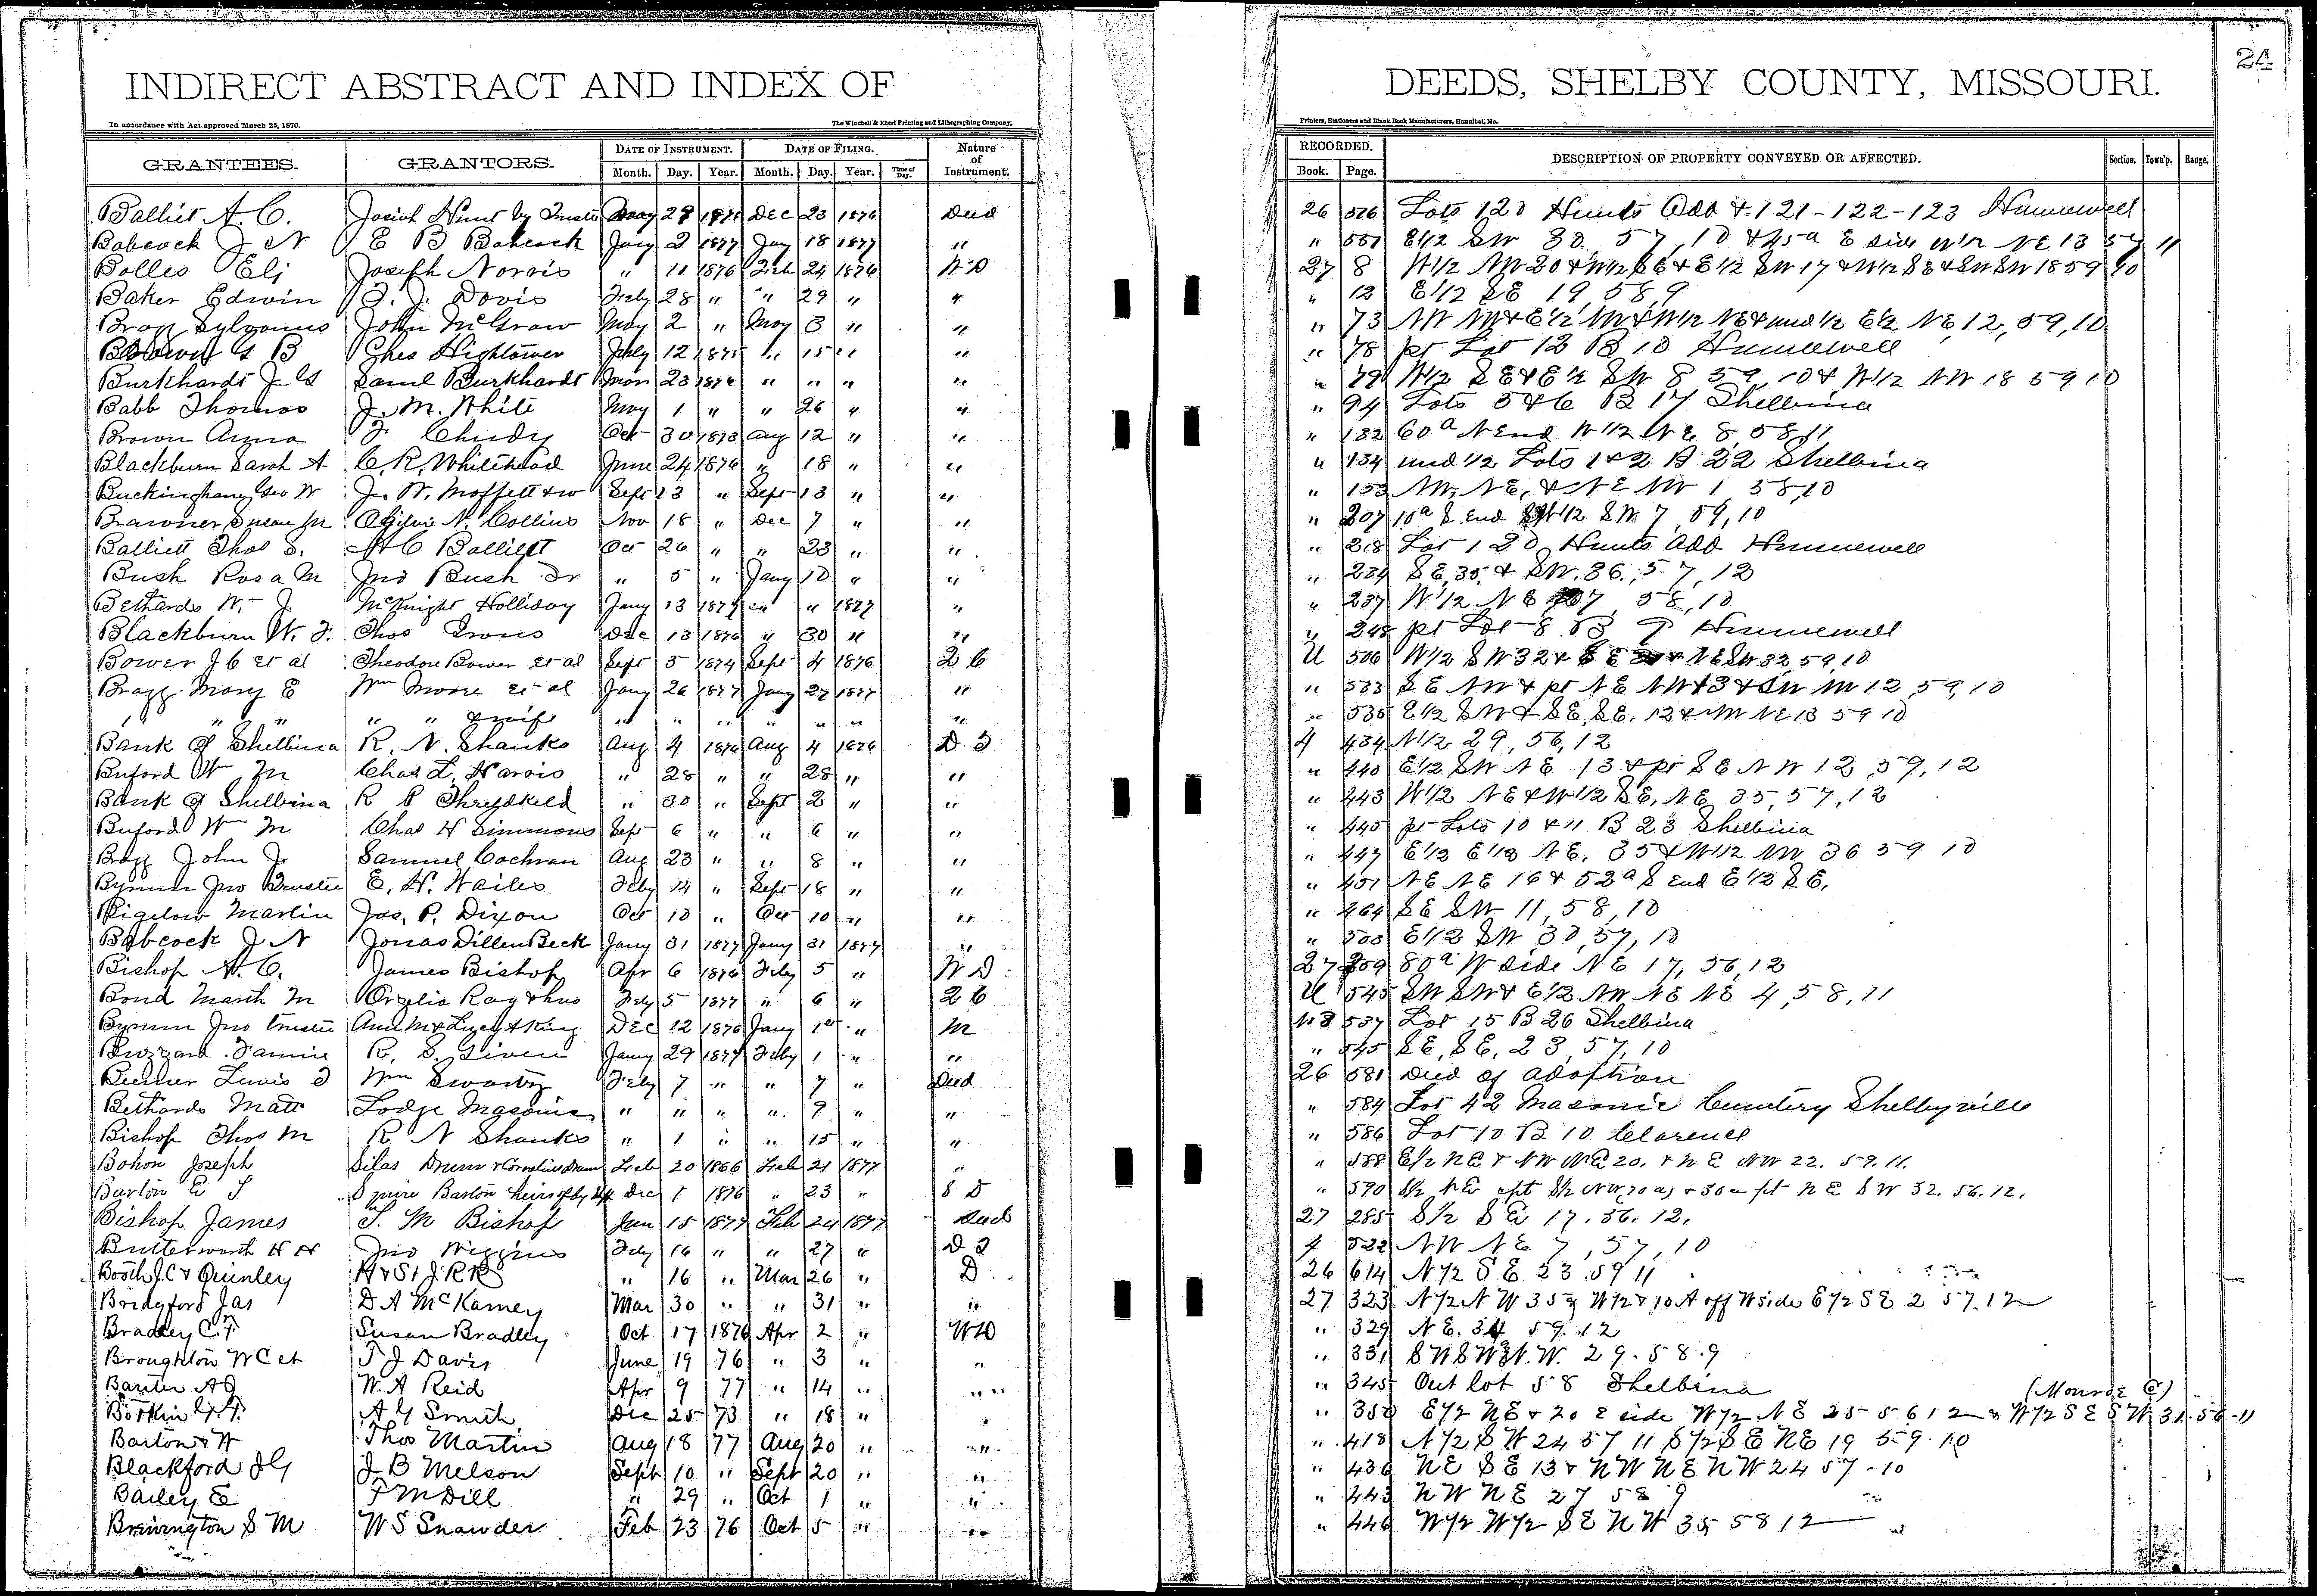 24
INDIRECT ABSTRACT AND INDEX OF DEEDS, SHELBY COUNTY, MISSOURI.
In accordance with Act approved March 25, 1870. The Winchell & Ebert Printing and Lithographing Company, Printers, Stationers and Blank Book Manufacturers, Hannibal, Mo.
GRANTEES. GRANTORS. DATE OF INSTRUMENT. DATE OF FILING. Nature of Instrument. RECORDED. DESCRIPTION OF PROPERTY CONVEYED OR AFFECTED. Section. Town'p. Range.
Month. Day. Year. Month. Day. Year. Time of Day. Book. Page.
Balliet A. C. Josiah Hunt by Trustee May 29 1876 Dec 23 1876 Deed 26 526 Lots 120 Hunts Add & 121-122-123 Hunnewell
Babcock J N E B Babcock Jany 2 1877 Jany 18 1877 " " 551 E1/2 SW 30 57, 10 & 45a E side W1/2 NE 13 57 11
Bolles Eli Joseph Norris " 11 1876 Feb 24 1876 WD 27 8 W1/2 NW 20 & W1/2 SE & E1/2 SW 17 & W1/2 SE & SW SW 18 59 10
Baker Edwin T. J. Davis Feby 28 " " 29 " " " 12 E1/2 SE 19, 58, 9
Bragg Sylvanus John McGraw May 2 " May 3 " " " 73 NW NW & E1/2 NW & W1/2 NE & und 1/2 E1/2 NE, 12, 59, 10
Brown G B Chas Hightower July 12 1875 " 15 " " " 78 pt Lot 12 B 10 Hunnewell
Burkhardt J G Saml Burkhardt Mar 23 1876 " " " " " 79 W1/2 SE & E1/2 SW 8 59, 10 & W1/2 NW 18 59 10
Babb Thomas J. M. White May 1 " " 26 " " " 94 Lots 5 & 6 B 17 Shelbina
Brown Anna F. Chudy Oct 30 1873 Aug 12 " " " 132 60a N End W1/2 NE 8, 58, 11
Blackburn Sarah A C. R. Whitehead June 24 1876 " 18 " " " 134 und 1/2 Lots 1 & 2 B 22 Shelbina
Buckingham Geo W J. W. Moffett & w Sept 13 " Sept 13 " " " 153 NW, NE, & NE NW 1, 58, 10
Brawner Susan M Ogilvie N. Collins Nov 18 " Dec 7 " " " 207 10a S End W1/2 SW 7, 59, 10
Balliett Thos S. A C Balliett Oct 26 " " 23 " " " 218 Lot 120 Hunts Add Hunnewell
Bush Rosa M Jno Bush Sr " 5 " Jany 10 " " " 234 SE, 35, & SW. 36., 57, 12
Bethards W. J. McKnight Holliday Jany 13 1877 " " 1877 " " 237 W1/2 NE 7, 58, 10
Blackburn W. F. Thos Irons Dec 13 1876 " 30 " " " 248 pt Lot 8 B 9 Hunnewell
Bower J C et al Theodore Bower et al Sept 5 1874 Sept 4 1876 2 C U 506 W1/2 SW 32 & SE & NE SW 32 59, 10
Bragg Mary E Wm Moore et al Jany 26 1877 Jany 27 1877 " " 533 SE NW & pt NE NW & 3 & SW NW 12, 59, 10
" " " " " & wife " " " " " " " " 535 E1/2 SW & SE, SE, 12 & NW NE 13 59 10
Bank of Shelbina R. N. Shanks Aug 4 1876 Aug 4 1876 D T 4 434 N1/2 29, 56, 12
Buford Wm M Chas L. Harris " 28 " " 28 " " " 440 E1/2 SW NE 13 & pt SE NW 12, 59, 12
Bank of Shelbina R P Threldkeld " 30 " Sept 2 " " " 443 W1/2 NE & W1/2 SE, NE, 35, 57, 12
Buford Wm M Chas H Simmons Sept 6 " " 6 " " " 445 pt Lots 10 & 11 B 23 Shelbina
Bragg John J. Samuel Cochran Aug 23 " " 8 " " " 447 E1/2 E1/2 NE, 35 & W1/2 NW 36 59 10
Bynum Jno Trustee E. H. Wailes Feby 14 " Sept 18 " " " 451 NE NE 16 & 52a S End E1/2 SE,
Bigelow Martin Jas. P. Dixon Oct 10 " Oct 10 " " " 464 SE SW 11, 58, 10
Babcock J N Jonas DillenBeck Jany 31 1877 Jany 31 1877 " " 503 E1/2 SW 30, 57, 10
Bishop A. C. James Bishop Apr 6 1876 Feby 5 " W D 27 259 80a W side NE 17, 56, 12
Bond Marth M Orzelia Ray & hus Feby 5 1877 " 6 " 2 C U 545 SW SW & E1/2 NW NE NE 4, 58, 11
Bynum Jno trustee Ann M & Lucy A King Dec 12 1876 Jany 1st " M No 3 537 Lot 15 B 26 Shelbina
Buzzard Fannie R. S. Given Jany 29 1877 Feby 1 " " " 545 SE, SE, 23, 57, 10
Beemer Lewis Wm Swartz Feby 7 " " 7 " Deed 26 581 Deed of Adoption
Bethards Matt Lodge Masonic " " " " 9 " " " 584 Lot 42 Masonic Cemetery Shelbyville
Bishop Thos M R N Shanks " 1 " " 15 " " " 586 Lot 10 B 10 Clarence
Bohon Joseph Silas Drum & Cornelius Drum Feb 20 1866 Feb 21 1877 " " 588 E1/2 NE & NW NE 20. & NE NW 22. 59. 11.
Barton E T Squire Barton heirs of by Shff Dec 1 1876 " 23 " S D " 590 S1/2 NE cpt S1/2 NW 70 as & 30 a pt NE SW 32. 56. 12.
Bishop James T. M Bishop Jan 15 1877 Feb 24 1877 Deed 27 285 S1/2 SE 17. 56. 12.
Butterworth H H Jno Wiggins Feby 16 " " 27 " D T 4 522 NW NE 7, 57, 10
Booth J. C & Quinley H & St J. R R " 16 " Mar 26 " D 26 614 N1/2 SE 23. 59 11
Bridgford Jas D A McKamey Mar 30 " " 31 " " 27 323 N1/2 NW 35 & W1/2 & 10 A off W side E1/2 SE 2 57. 12
Bradley C. F. Susan Bradley Oct 17 1876 Apr 2 " WD " 329 NE. 34 59. 12
Broughton W C et T J Davis June 19 76 " 3 " " " 331 SW SW & N. W. 29. 58. 9
Baxter A J W. A Reid Apr 9 77 " 14 " " " 345 Out lot 58 Shelbina
(Monroe Co)
Botkin A G Smith Dec 25 73 " 18 " " " 350 E1/2 NE & 20 E side W1/2 NE 25 56 12 & W1/2 SE SW 31-56-11
Barton W Thos Martin Aug 18 77 Aug 20 " " " 418 N1/2 SW 24 57 11 S1/2 SE NE 19 59. 10
Blackford J G J B Melson Sept 10 " Sept 20 " " " 436 NE SE 13 & NW NE NW 24 57-10
Bailey E T M Dill " 29 " Oct 1 " " " 443 NW NE 27 58 9
Brewington S M W S Snawder Feb 23 76 Oct 5 " " " 446 W1/2 W1/2 SE NW 35 58 12